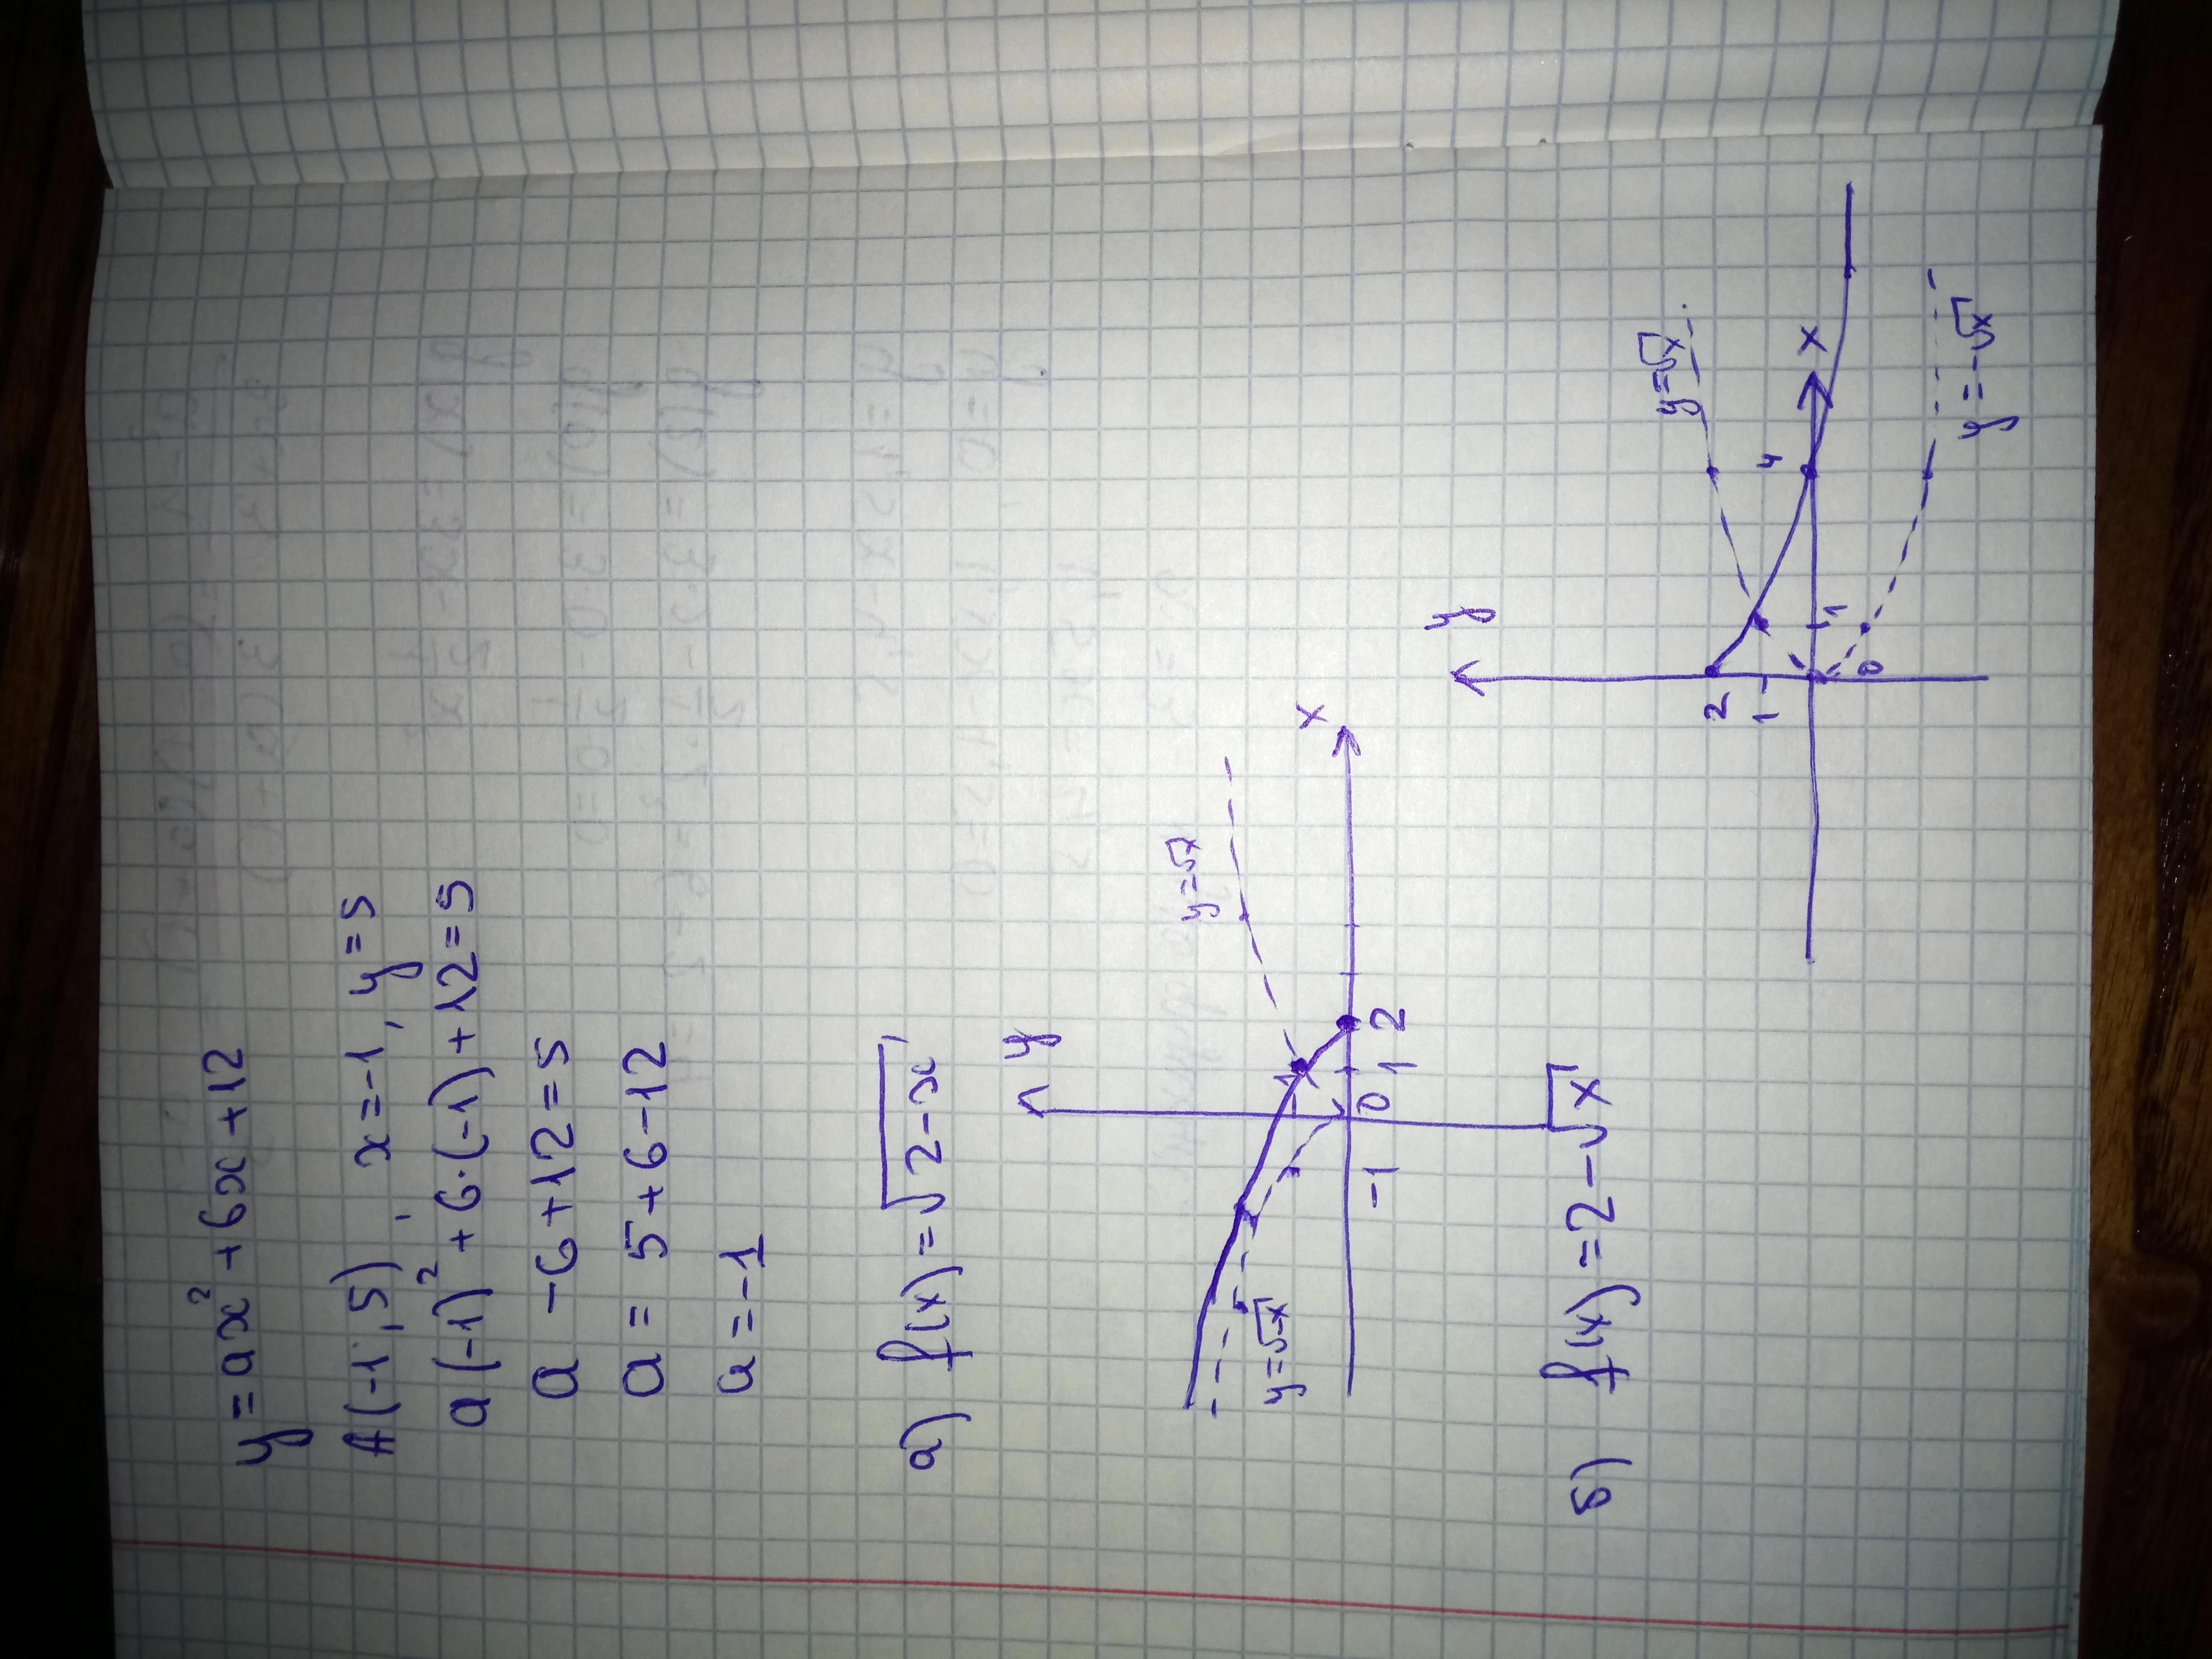 y = ax² + 6x + 12
A(-1; 5), x = -1, y = 5
a(-1)² + 6·(-1) + 12 = 5
a - 6 + 12 = 5
a = 5 + 6 - 12
a = -1
а) f(x) = √(2-x)
y
x
y=√x
y=√-x
-1 0 1 2
б) f(x) = 2 - √x
y
x
y=√x
2
1
0 1 4
y = -√x